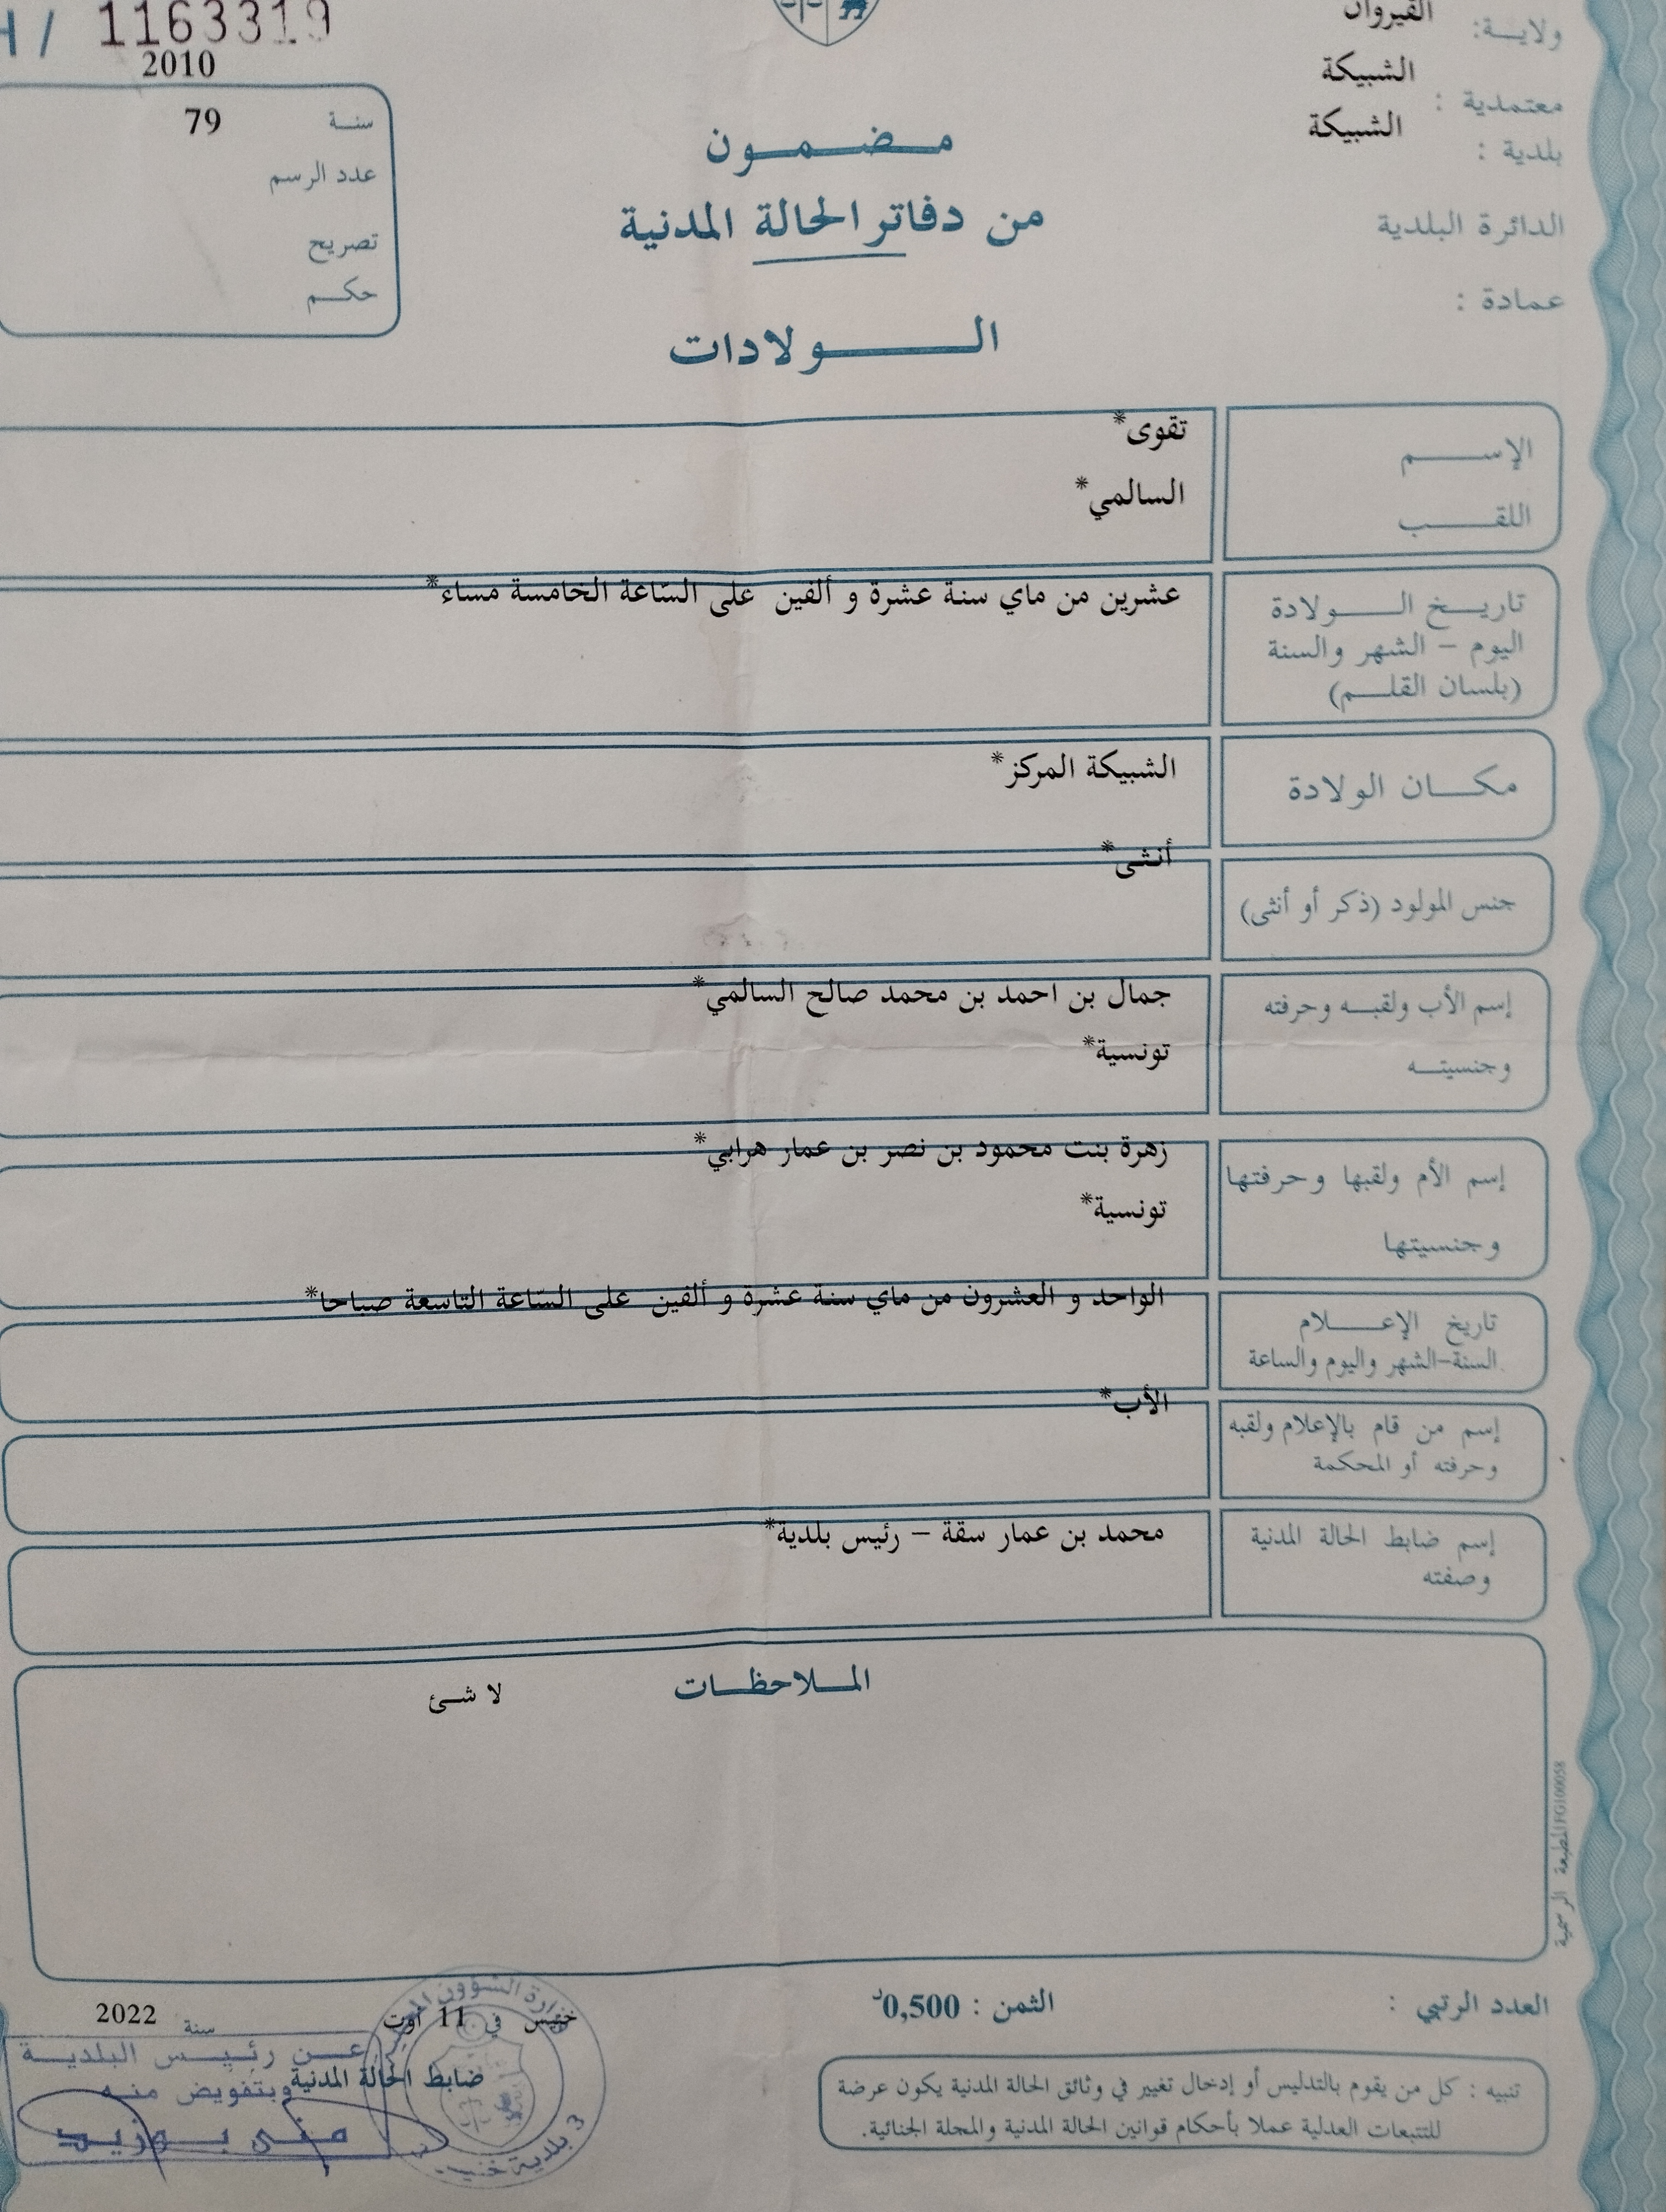 H / 1163319
2010
سنة 79
عدد الرسم
تصريح
حكم
ولاية: القيروان
معتمدية : الشبيكة
بلدية : الشبيكة
الدائرة البلدية
عمادة :
مضمون
من دفاتر الحالة المدنية
الولادات
الإسم تقوى*
اللقب السالمي*
تاريخ الولادة عشرين من ماي سنة عشرة و ألفين على السّاعة الخامسة مساء*
اليوم – الشهر والسنة
(بلسان القلم)
مكان الولادة الشبيكة المركز*
جنس المولود (ذكر أو أنثى) أنثى*
إسم الأب ولقبه وحرفته جمال بن احمد بن محمد صالح السالمي*
وجنسيته تونسية*
إسم الأم ولقبها وحرفتها زهرة بنت محمود بن نصر بن عمار هرابي*
وجنسيتها تونسية*
تاريخ الإعلام الواحد و العشرون من ماي سنة عشرة و ألفين على السّاعة التاسعة صباحا*
السنة-الشهر واليوم والساعة
إسم من قام بالإعلام ولقبه الأب*
وحرفته أو المحكمة
إسم ضابط الحالة المدنية محمد بن عمار سقة – رئيس بلدية*
وصفته
الملاحظات لا شئ
المطبعة الرسمية FG100058
العدد الرتبي :
الثمن : 0,500د
خنيس في 11 أوت سنة 2022
ضابط الحالة المدنية
عن رئيس البلدية
وبتفويض منه
منى بوزيد
وزارة الشؤون
3 بلدية خنيس
تنبيه : كل من يقوم بالتدليس أو إدخال تغيير في وثائق الحالة المدنية يكون عرضة
للتتبعات العدلية عملا بأحكام قوانين الحالة المدنية والمجلة الجنائية.